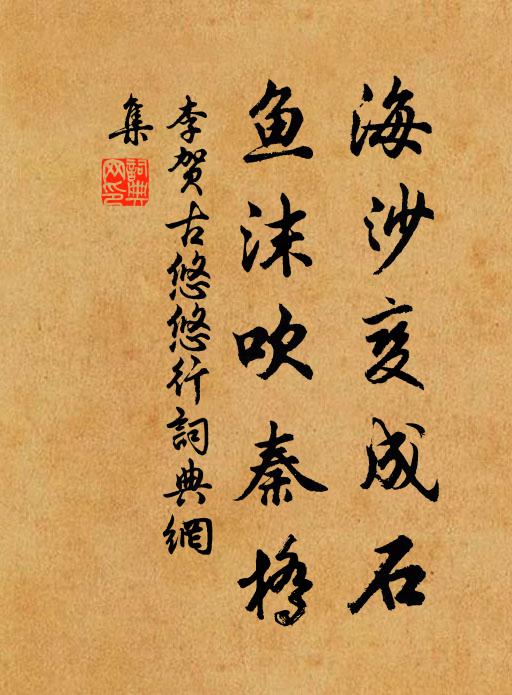 海沙变成石
鱼沫吹秦桥
李贺古悠悠行詞典網
集
詞典網印